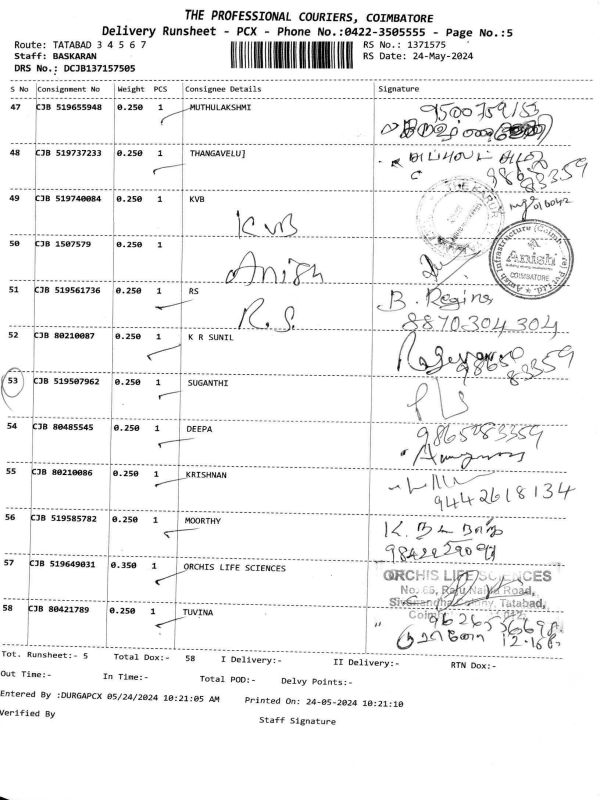 THE PROFESSIONAL COURIERS, COIMBATORE
Delivery Runsheet - PCX - Phone No.:0422-3505555 - Page No.:5
Route: TATABAD 3 4 5 6 7 RS No.: 1371575
Staff: BASKARAN RS Date: 24-May-2024
DRS No.: DCJB137157505
S No Consignment No Weight PCS Consignee Details Signature
47 CJB 519655948 0.250 1 MUTHULAKSHMI 9500759153
48 CJB 519737233 0.250 1 THANGAVELU]
49 CJB 519740084 0.250 1 KVB
KVB
50 CJB 1507579 0.250 1
Anish
Anish
COIMBATORE
51 CJB 519561736 0.250 1 RS B. Regina
R.S. 8870304304
52 CJB 80210087 0.250 1 K R SUNIL
98650 83359
53 CJB 519507962 0.250 1 SUGANTHI
54 CJB 80485545 0.250 1 DEEPA 9865083359
55 CJB 80210086 0.250 1 KRISHNAN
9442618134
56 CJB 519585782 0.250 1 MOORTHY
57 CJB 519649031 0.350 1 ORCHIS LIFE SCIENCES ORCHIS LIFE SCIENCES
No: 66, Raju Naidu Road,
Tatabad,
58 CJB 80421789 0.250 1 TUVINA
Tot. Runsheet:- 5 Total Dox:- 58 I Delivery:- II Delivery:- RTN Dox:-
Out Time:- In Time:- Total POD:- Delvy Points:-
Entered By :DURGAPCX 05/24/2024 10:21:05 AM Printed On: 24-05-2024 10:21:10
Verified By Staff Signature